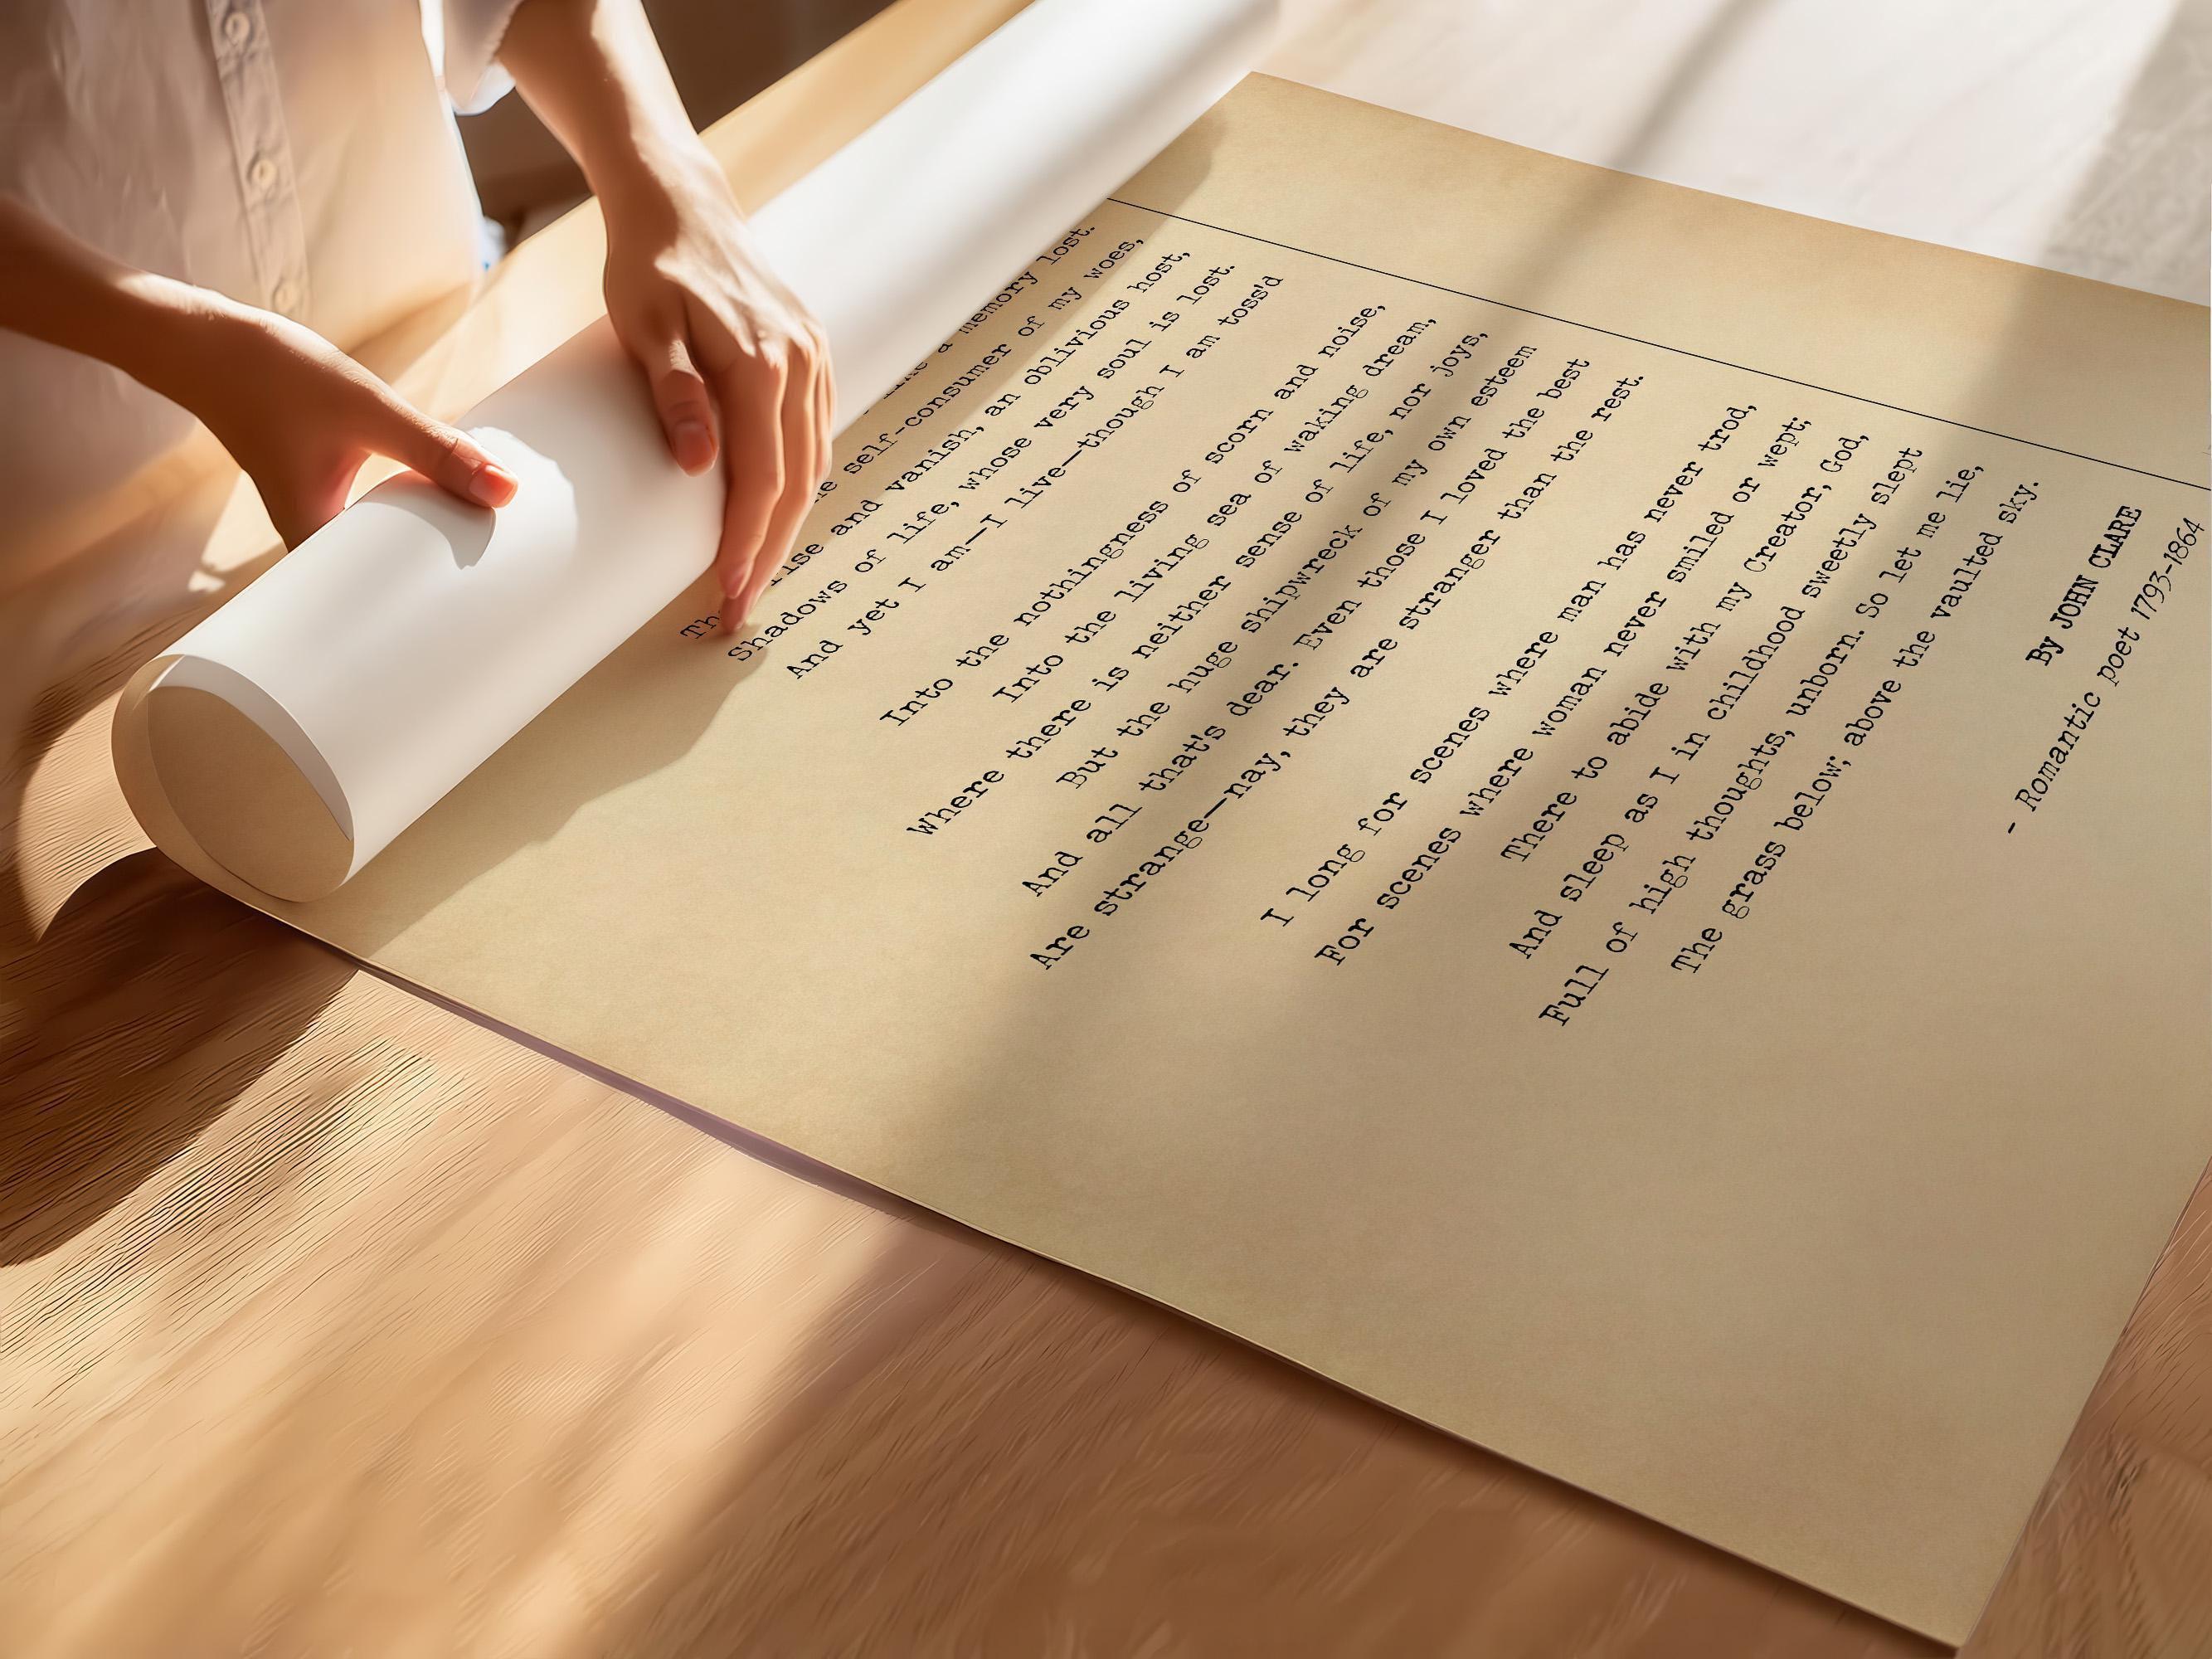 a memory lost.
self-consumer of my woes,
rise and vanish, an oblivious host,
Shadows of life, whose very soul is lost.
And yet I am—I live—though I am toss'd
Into the nothingness of scorn and noise,
Into the living sea of waking dream,
Where there is neither sense of life, nor joys,
But the huge shipwreck of my own esteem
And all that's dear. Even those I loved the best
Are strange—nay, they are stranger than the rest.
I long for scenes where man has never trod,
For scenes where woman never smiled or wept;
There to abide with my Creator, God,
And sleep as I in childhood sweetly slept
Full of high thoughts, unborn. So let me lie,
The grass below; above the vaulted sky.
By JOHN CLARE
- Romantic poet 1793-1864